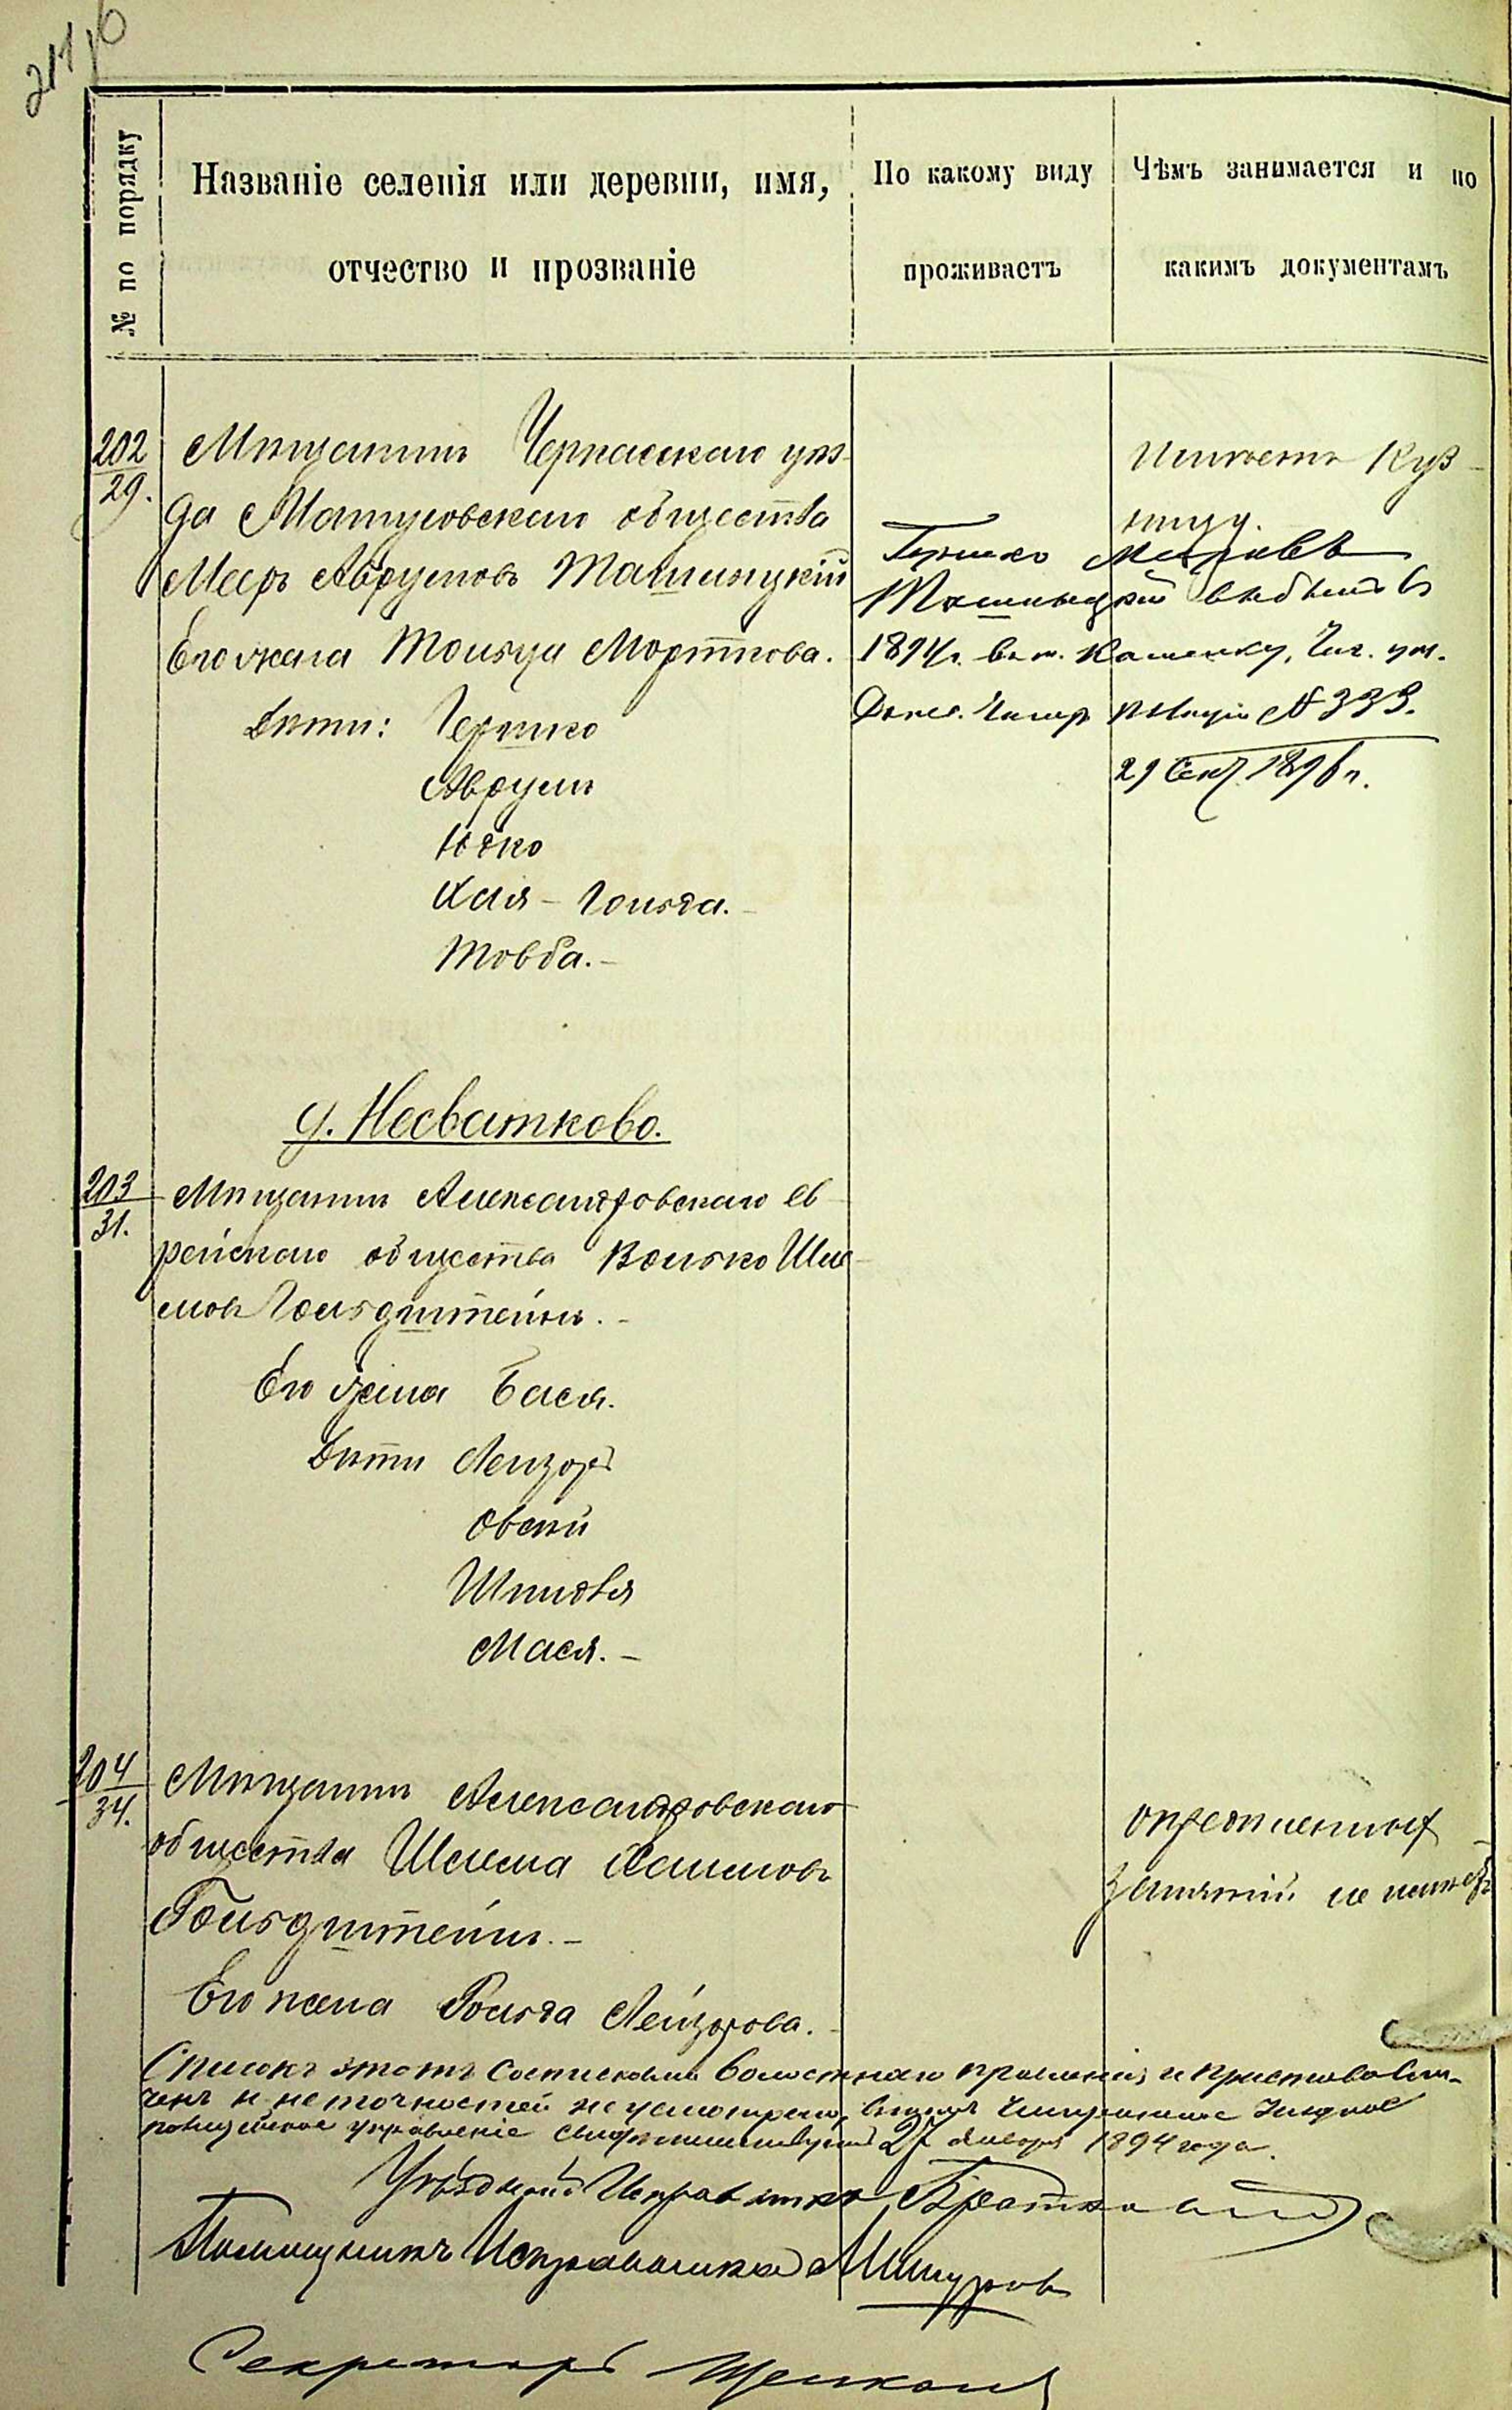 № по порядку
Названіе селенія или деревни, имя,
отчество и прозваніе
По какому виду
проживаетъ
Чѣмъ занимается и по
какимъ документамъ
202
29.
Мѣщанинъ Черкасскаго уѣз-
да Матусовскаго общества
Меръ Аврумовъ Ташлыцкій
Его жена Тользя Морткова.
Дѣти: Гершко
Аврумъ
Ицко
Хая - Гольда.-
Товба.-
Имѣетъ Куз-
ницу.
Гершко Меровъ
Ташлыцкій выбылъ въ
1894 г. въ м. Каменку, Чиг. уѣз.
Донес. Чигир. Полиціи № 333.
29 Сент. 1896 г.
д. Несватково.
203
31.
Мѣщанинъ Александровскаго ев-
рейскаго общества Волько Шле-
мовъ Гольдштейнъ.-
Его жена Бася.
Дѣти Лейзоръ
Овсѣй
Шпио
Мася.-
204
34.
Мѣщанинъ Александровскаго
общества Шлема Хаимовъ
Гольдштейнъ.-
Его жена Гольда Лейзорова.
опредѣленныхъ
занятій не имѣетъ
Списокъ этотъ волостнаго правленія и
и неточностей не усмотрено, въ чемъ Чигиринское Уѣздное
полицейское управленіе свидѣтельствуетъ 27 Января 1894 года.
Уѣздный Исправникъ
Помощникъ Исправника
Секретарь